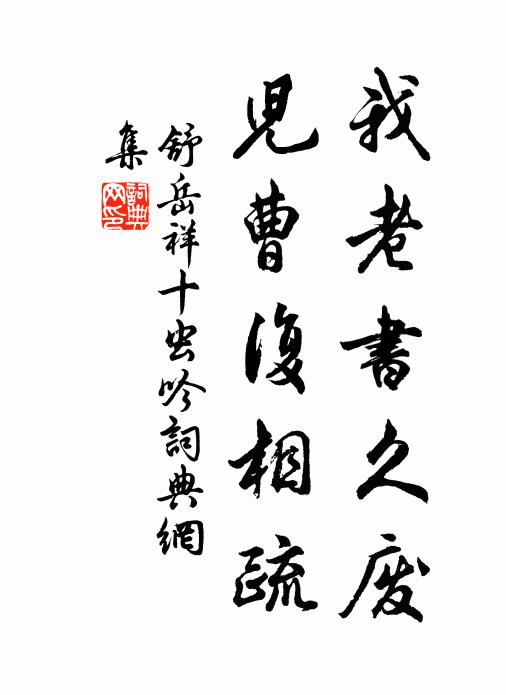 我老書久废
児曹復相疏
舒岳祥十虫吟詞典網
集
詞典网印